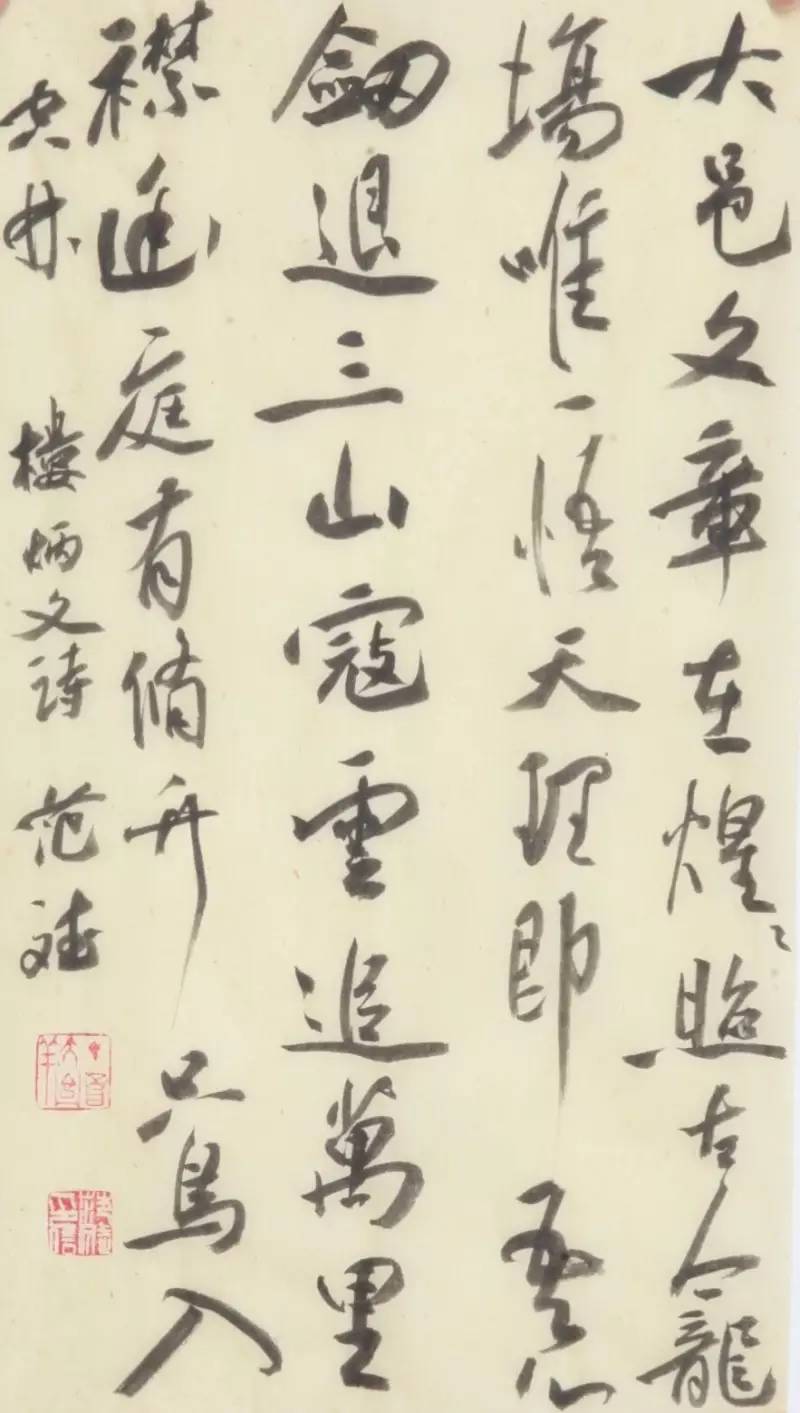 大邑文章在煌々照古今龍
場唯一悟天理即吾心
劒退三山寇雲追萬里
襟遙庭有脩竹只鳥入
空林 樓炳文詩 范斌